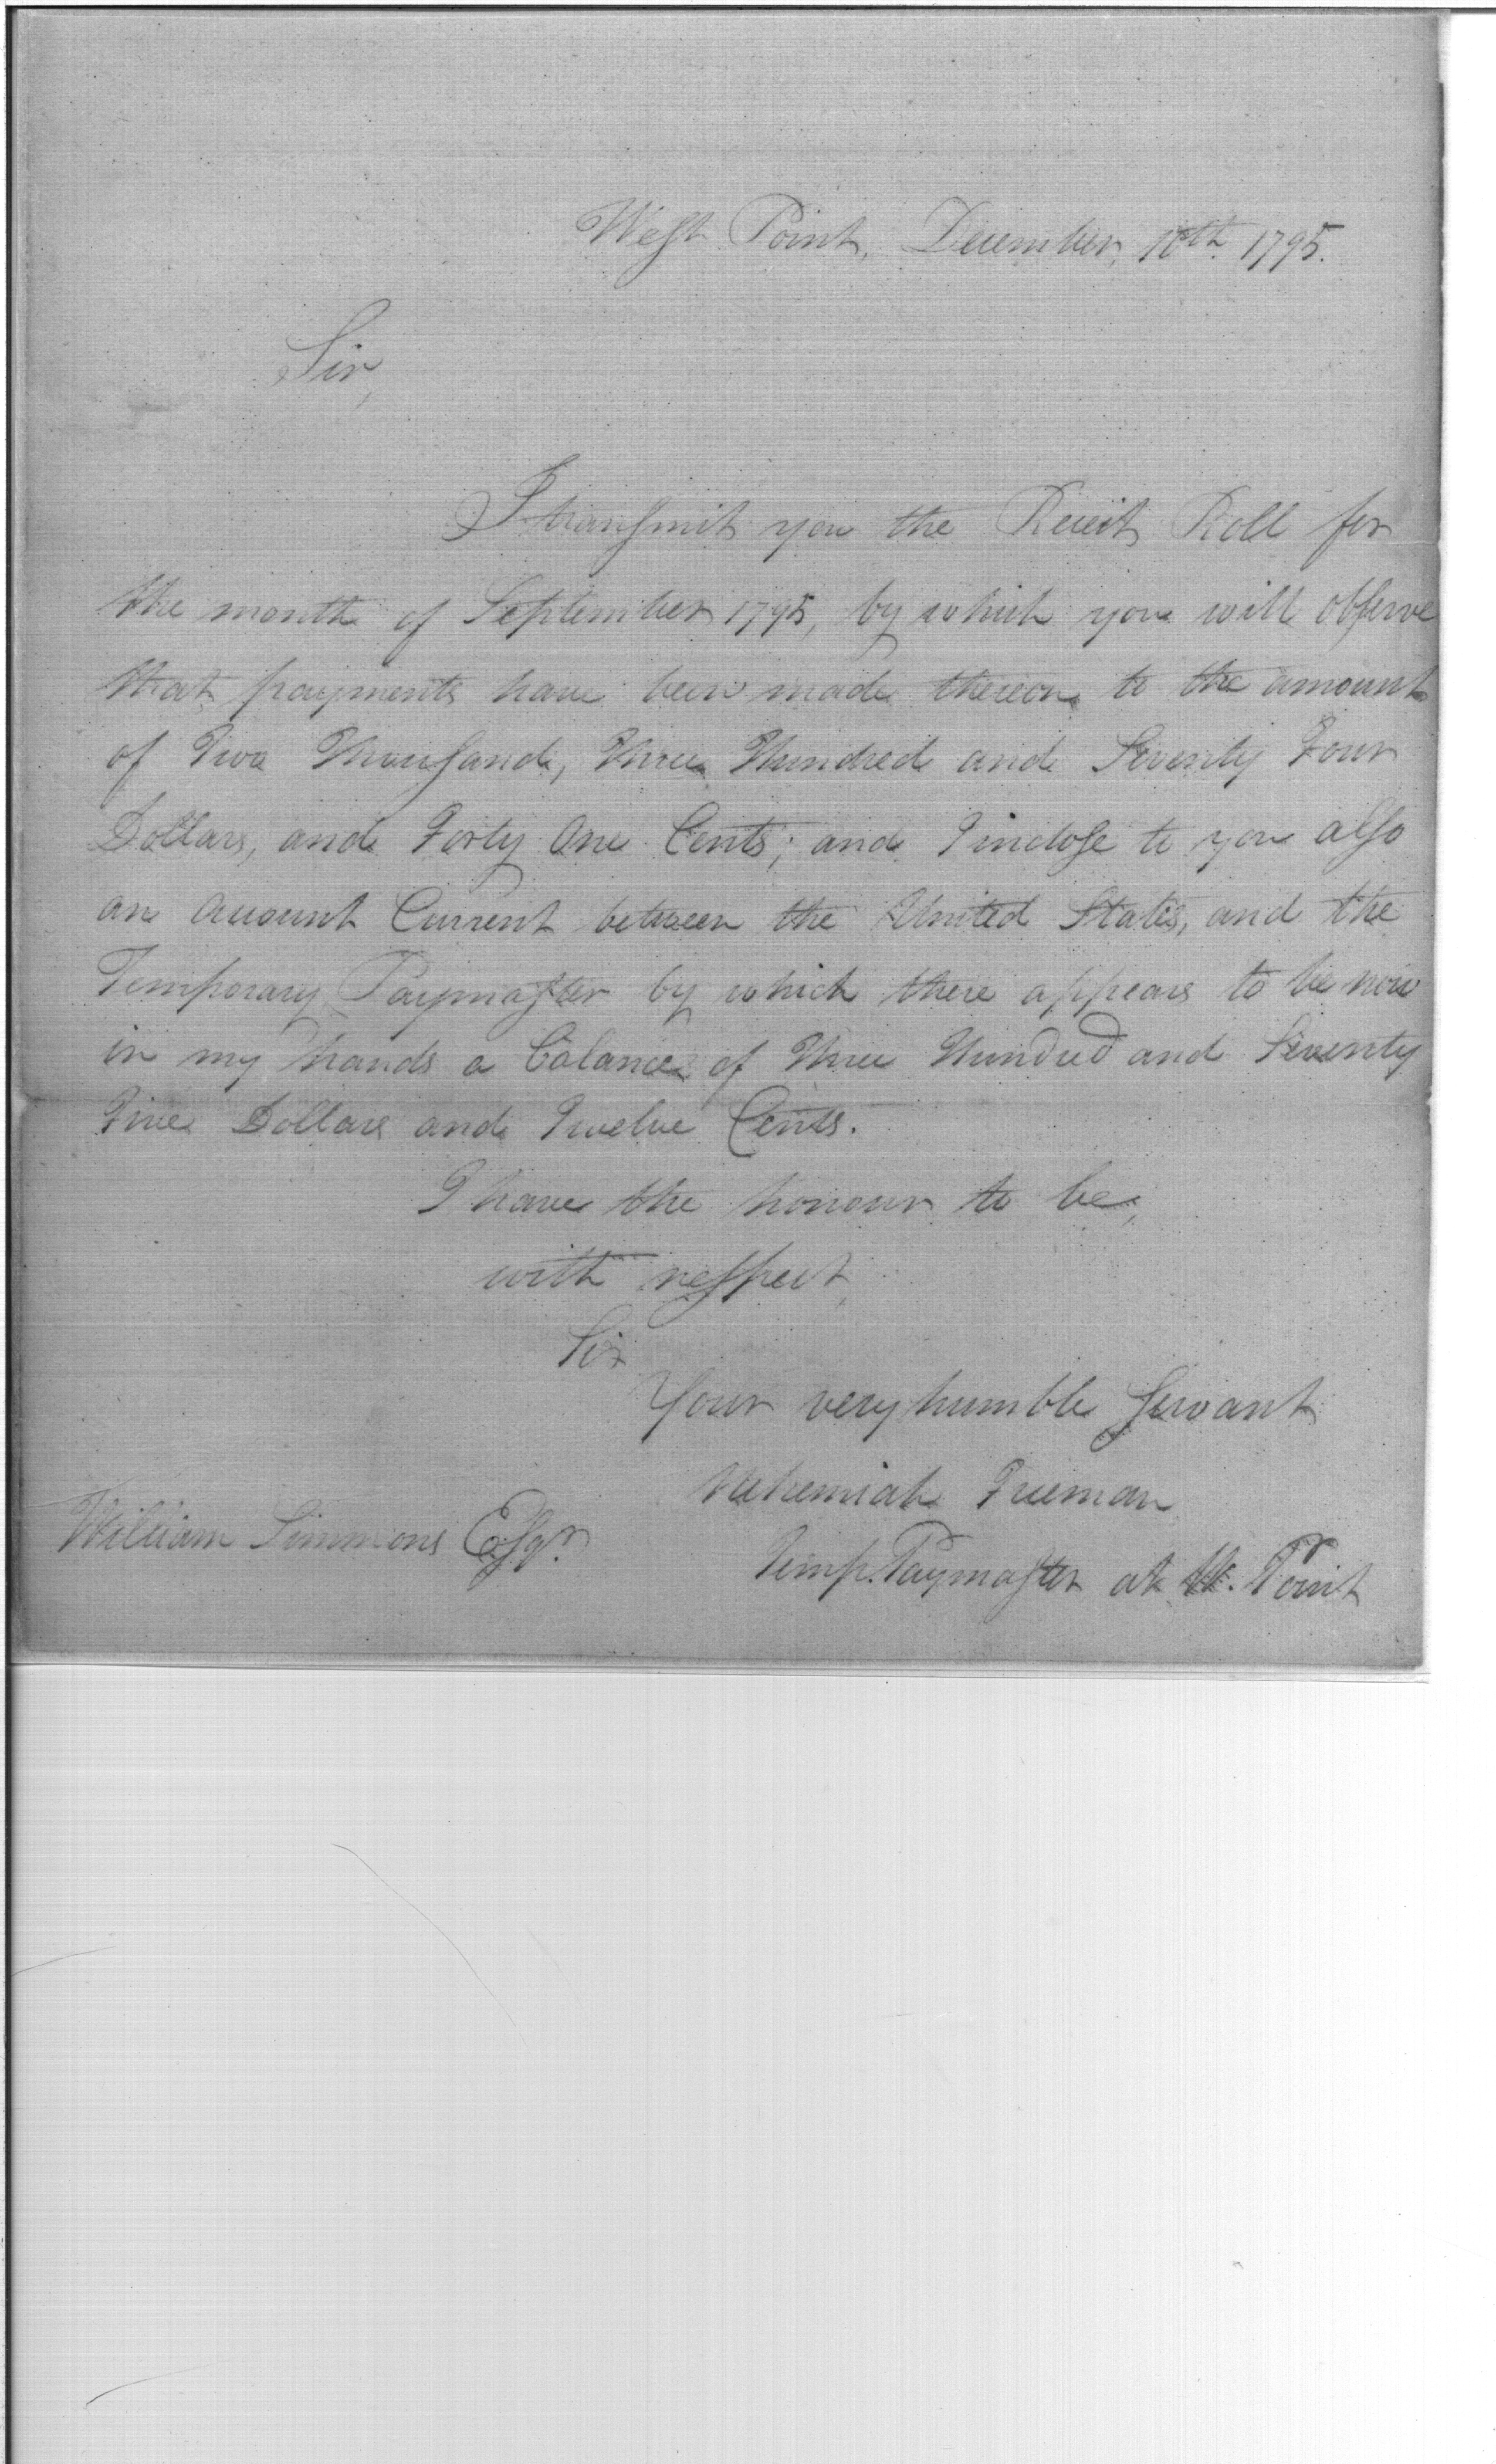 West Point, December, 10th. 1795.
Sir,
I transmit you the Receit Roll for
the month of September 1795, by which you will observe
that payments have been made thereon to the amount
of Two Thousand, Three Hundred and Seventy Four
Dollars, and Forty One Cents; and I inclose to you also
an account Current between the United States, and the
Temporary Paymaster by which there appears to be now
in my hands a balance of Three Hundred and Seventy
Five Dollars and Twelve Cents.
I have the honour to be,
with respect,
Sir
Your very humble servant
Nehemiah Freeman
William Simmons Esqr.
Temp. Paymaster at W. Point